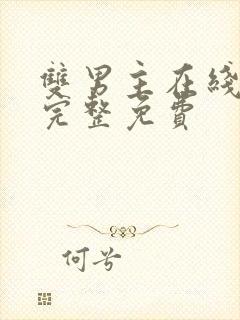 雙男主在綫
完整免費
何兮